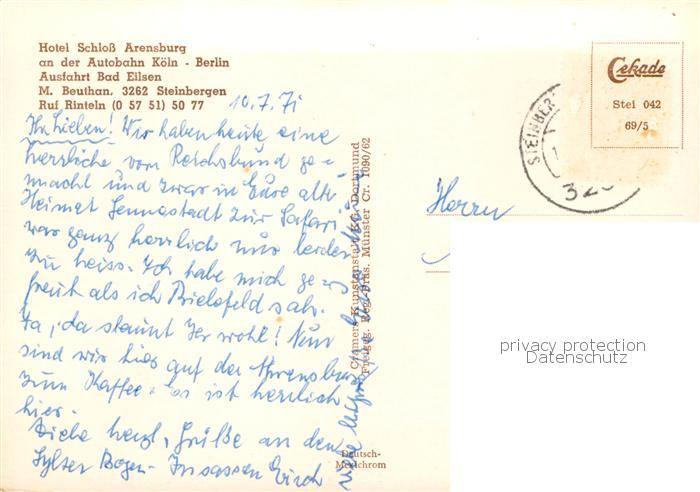 Hotel Schloß Arensburg
an der Autobahn Köln - Berlin
Ausfahrt Bad Eilsen
M. Beuthan. 3262 Steinbergen
Ruf Rinteln (0 57 51) 50 77
10.7.71
Ihr Lieben! Wir haben heute eine
herrliche vom Reichsbund ge-
macht und zwar in Eure alte
Heimat Sennestadt zur Safari
war ganz herrlich nur leider
zu heiss. Ich habe mich ge-
freut als ich Bielefeld sah.
Ja, da staunt Ihr wohl! Nun
sind wir hier auf der Ahrensburg
zum Kaffee. Es ist herrlich
hier.
Viele herzl. Grüße an den
Sylter Bogen-Insassen
Cramers Kunstanstalt KG, Dortmund
Freigeg. Reg.-Präs. Münster Cr. 7090/62
Deutsch-
Mexichrom
Cekade
Stei 042
69/5
STEINBER
Herrn
privacy protection
Datenschutz